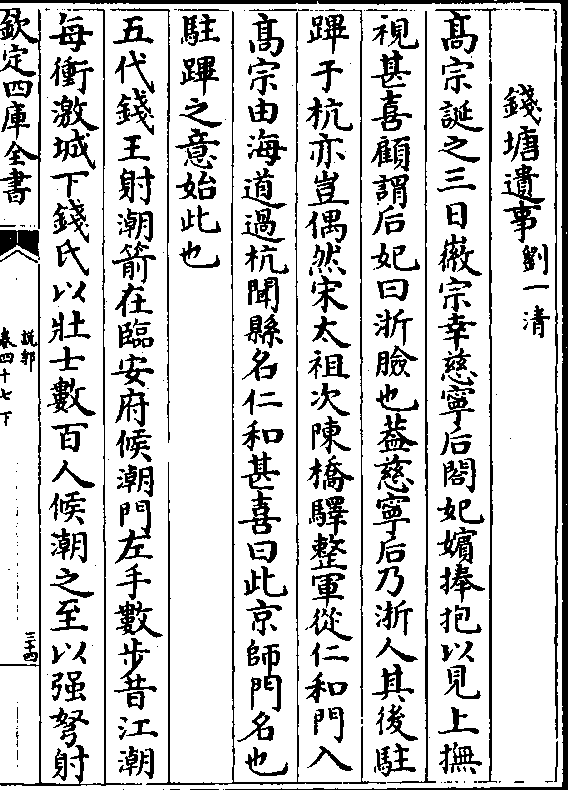 錢塘遺事劉一清
髙宗誕之三日徽宗幸慈寧后閤妃嬪捧抱以見上撫
視甚喜顧謂后妃曰浙臉也葢慈寧后乃浙人其後駐
蹕于杭亦豈偶然宋太祖次陳橋驛整軍從仁和門入
髙宗由海道過杭聞縣名仁和甚喜曰此京師門名也
駐蹕之意始此也
五代錢王射潮箭在臨安府候潮門左手數步昔江潮
每衝激城下錢氏以壯士數百人候潮之至以强弩射
欽定四庫全書
說郛
卷四十七下
三十四